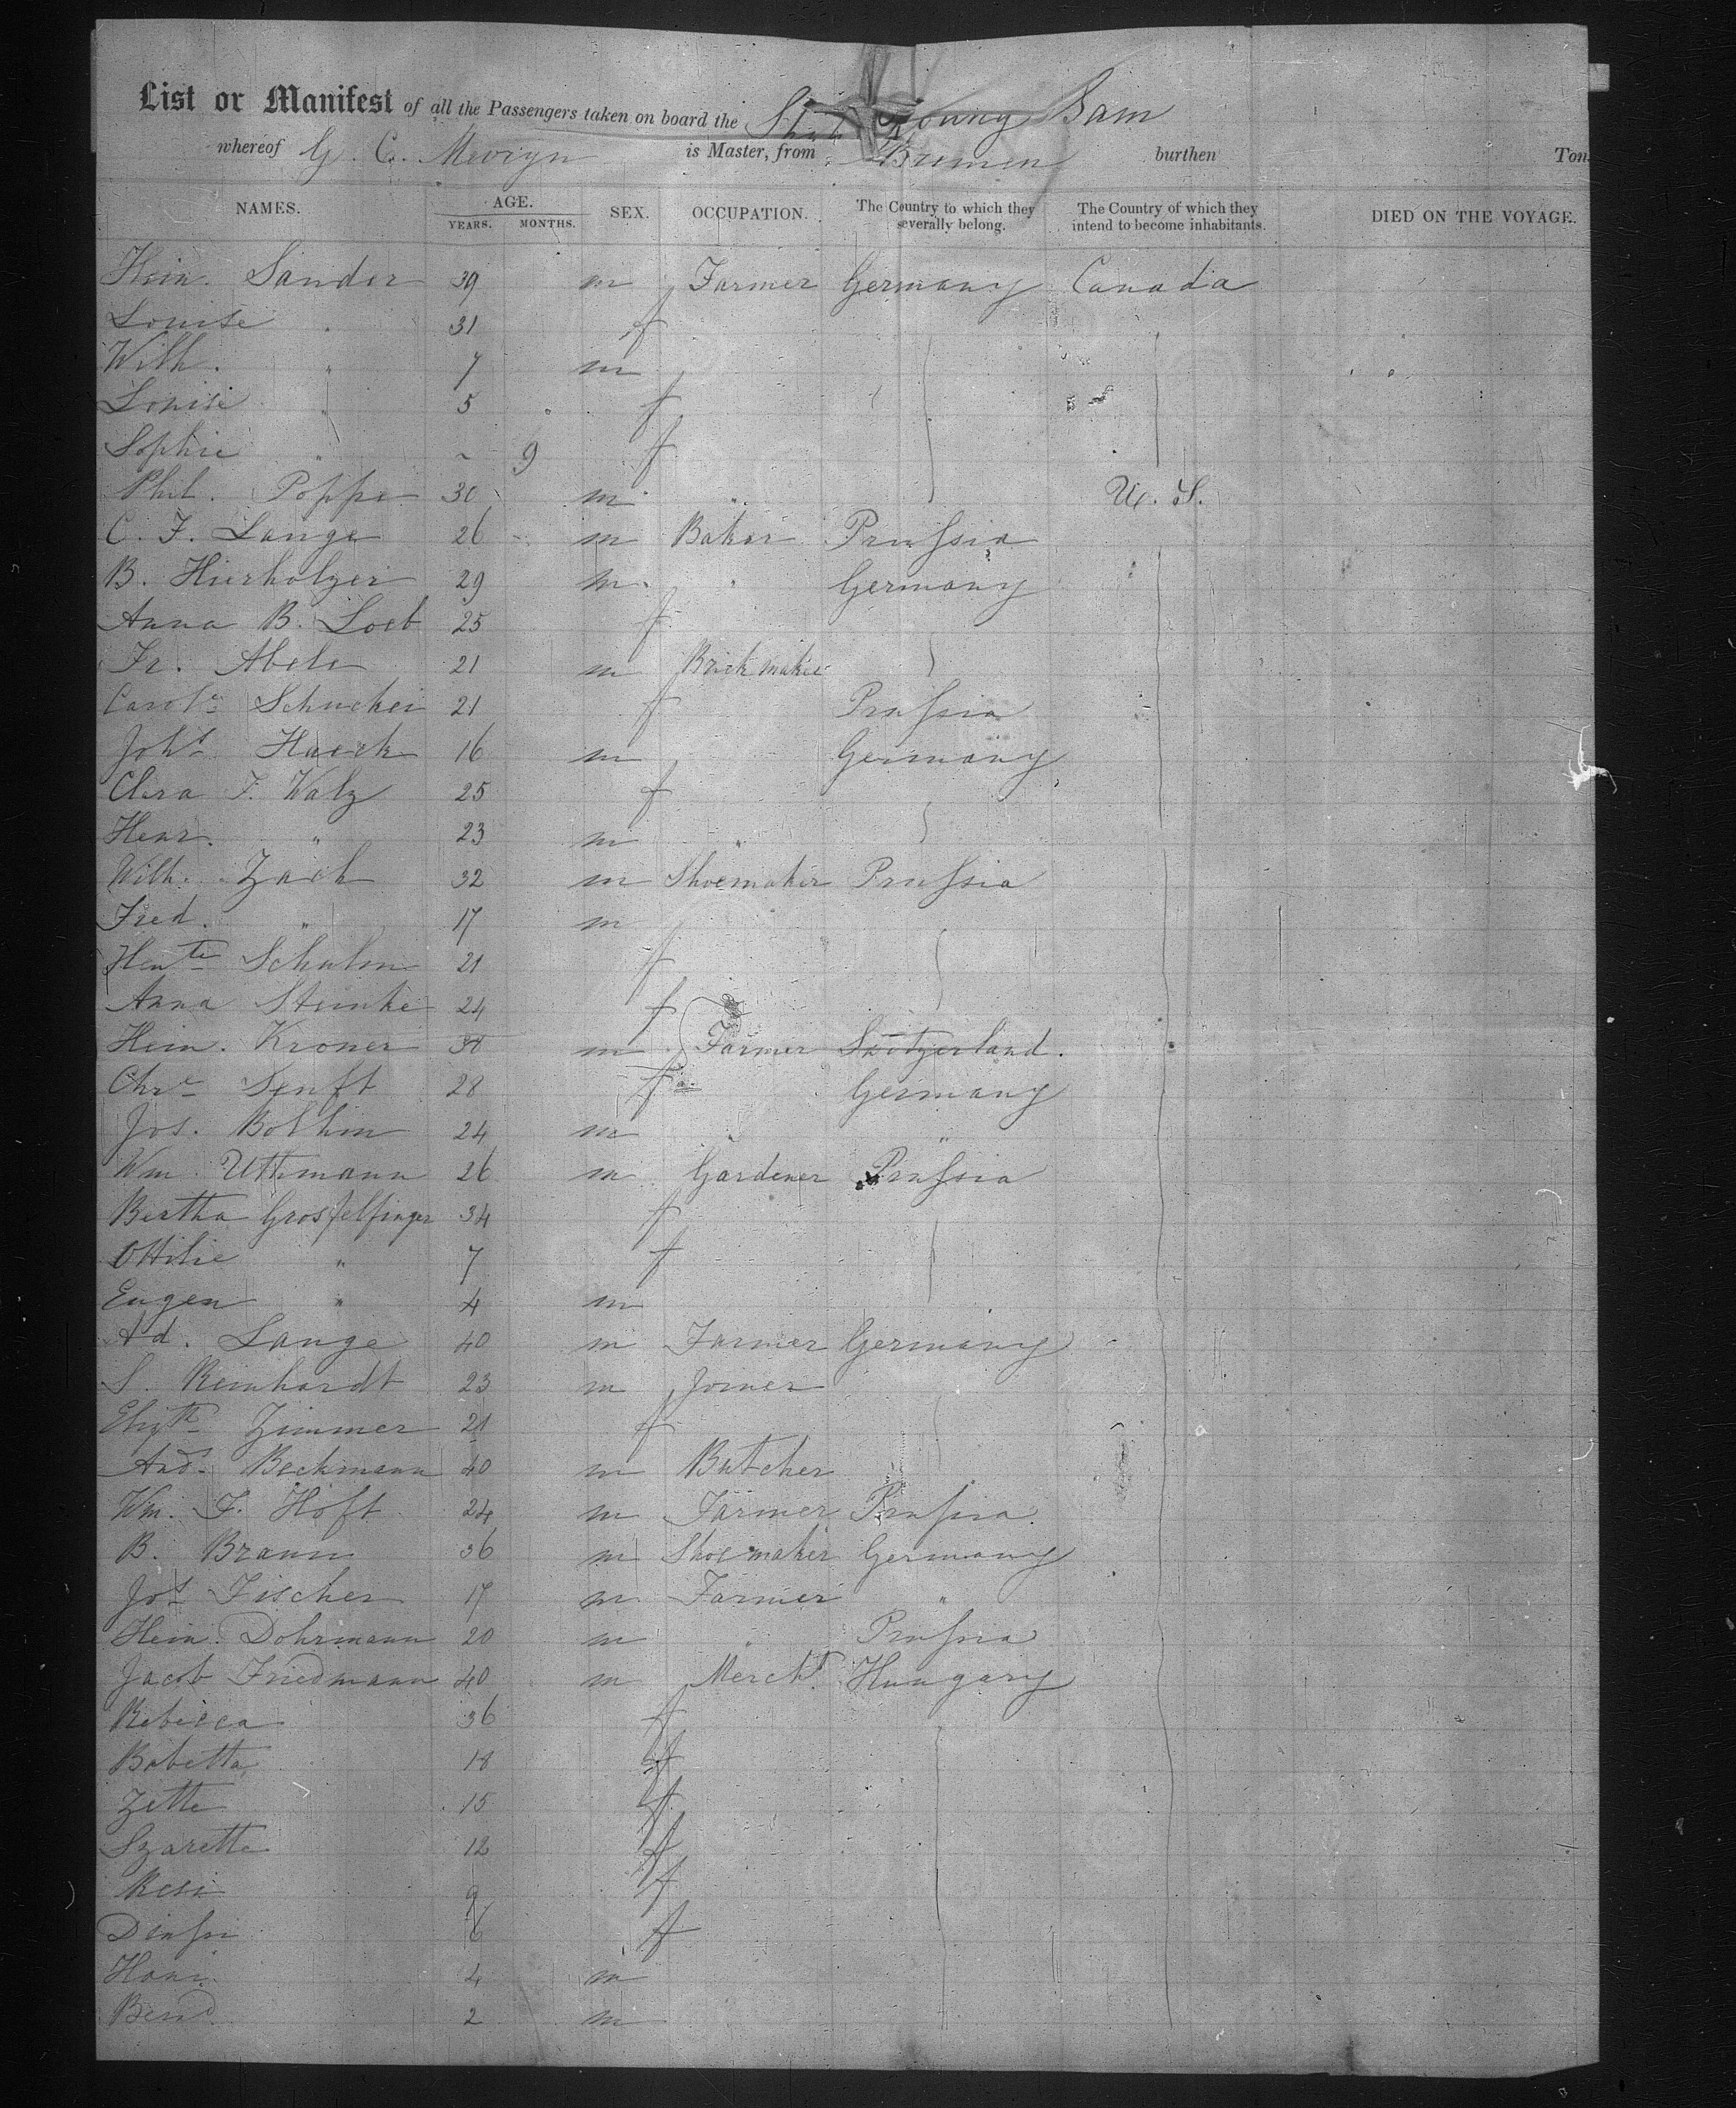 List or Manifest of all the Passengers taken on board the Ship Young Sam
whereof G. C. is Master, from Bremen burthen Ton
NAMES. AGE. YEARS. MONTHS. SEX. OCCUPATION. The Country to which they severally belong. The Country of which they intend to become inhabitants. DIED ON THE VOYAGE.
Hein. Sander 39 m Farmer Germany Canada
Louise " 31 f
Wilh. " 7 m
Louise " 5 f
Sophie " ~ 9 f
Phil. Poppe 30 m " U. S.
C. F. Lange 26 m Baker Prussia
B. Hierholzer 29 m " Germany
Anna B. Loeb 25 f
Fr. Abele 21 m Brickmaker
Carole Schucker 21 f Prussia
Johs Haeck 16 m Germany
Clara F. Walz 25 f
Henr. " 23 m "
Wilh. Zach 32 m Shoemaker Prussia
Fred. " 17 m
Hentte Schulm 21 f
Anna Steinke 24 f
Hein. Kroner 38 m Farmer Switzerland.
Chre Senft 28 f Germany
Jos. Bolhin 24 m "
Wm. Uthmann 26 m Gardener Prussia
Bertha Grosselfinger 34 f
Ottilie " 7 f
Eugen " 4 m
Ad. Lange 40 m Farmer Germany
S. Reinhardt 23 m Joiner
Elizth Zimmer 21 f
And. Beckmann 40 m Butcher
Wm. F. Hoft 24 m Farmer Prussia
B. Braun 36 m Shoemaker Germany
Jos Fischer 17 m Farmer "
Hein. Dohrmann 20 m " Prussia
Jacob Friedmann 40 m Mercht. Hungary
Rebecca 36 f
Babetta 18 f
Zette 15 f
Szarette 12 f
Resi 9 f
6 f
Hani 4 m
Bend 2 m